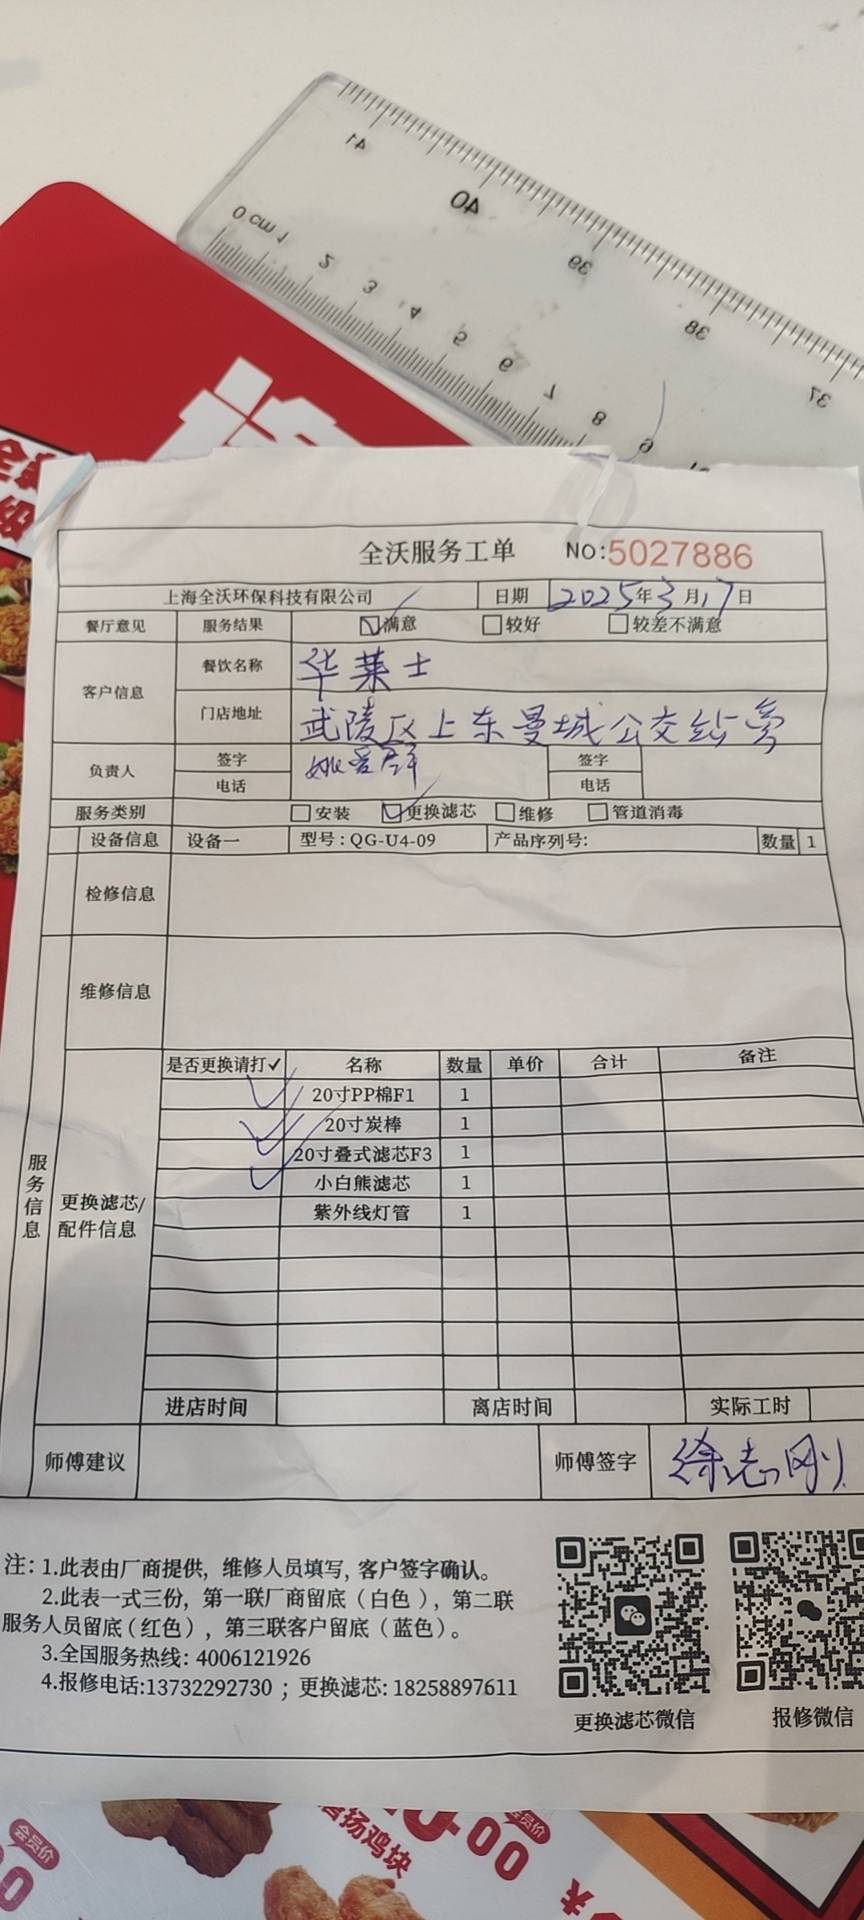 41
40
39
38
37
0 cm 1 2 3 4 5 6 7 8 9
全沃服务工单 NO:5027886
上海全沃环保科技有限公司 日期 2025年3月17日
餐厅意见 服务结果 满意 较好 较差不满意
客户信息 餐饮名称 华莱士
门店地址 武陵区上东曼城公交站旁
负责人 签字 姚爱群 签字
电话 电话
服务类别 安装 更换滤芯 维修 管道消毒
设备信息 设备一 型号:QG-U4-09 产品序列号: 数量 1
检修信息
维修信息
服务信息
更换滤芯/
配件信息
是否更换请打✓ 名称 数量 单价 合计 备注
✓ 20寸PP棉F1 1
✓ 20寸炭棒 1
✓ 20寸叠式滤芯F3 1
✓ 小白熊滤芯 1
紫外线灯管 1
进店时间 离店时间 实际工时
师傅建议 师傅签字 徐志刚
注: 1.此表由厂商提供, 维修人员填写, 客户签字确认。
2.此表一式三份, 第一联厂商留底(白色), 第二联
服务人员留底(红色), 第三联客户留底(蓝色)。
3.全国服务热线: 4006121926
4.报修电话:13732292730 ; 更换滤芯: 18258897611
更换滤芯微信 报修微信
会员价
扬鸡块
会员价